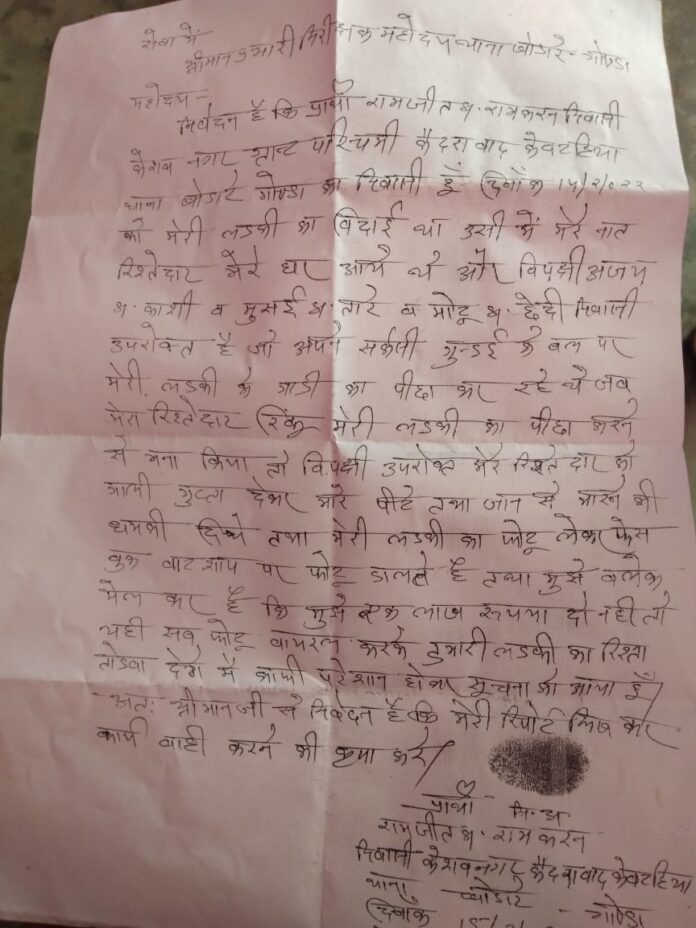 सेवा में
श्रीमान प्रभारी निरीक्षक महोदय थाना खोडारे - गोण्डा
महोदय -
निवेदन है कि प्रार्थी रामजीत पु. रामकरन निवासी
केशव नगर ग्रान्ट पश्चिमी कैदरावाद केवटहिया
थाना खोडारे गोण्डा का निवासी हूँ दिनाँक 14/2/022
को मेरी लडकी का विदाई था उसी में मेरे नात
रिश्तेदार मेरे घर आये थे और विपक्षी अजय
पु. काशी व मुसई पु. तारे व मोटू पु. छेदी निवासी
उपरोक्त है जो अपने सर्कसी गुन्डई के बल पर
मेरी लडकी के गाडी का पीछा कर रहे थे जब
मेरा रिश्तेदार रिंकू मेरी लडकी का पीछा करने
से मना किया तो विपक्षी उपरोक्त मेरे रिश्तेदार को
गाली गुप्ता देकर मारे पीटे तथा जान से मारने की
धमकी दिये तथा मेरी लडकी का फोटू लेकर फेस
वुक वाटशाप पर फोटू डालते है तथा मुझे वलेक
मेल कर है कि मुझे एक लाख रूपया दो नही तो
यही सव फोटू वायरल करके तुमारी लडकी का रिश्ता
तोडवा देगे मै काफी परेशान होकर सूचना को आया हूँ/
अतः श्रीमान जी से निवेदन है कि मेरी रिपोर्ट लिख कर
कार्य वाही करने की कृपा करे/
प्रार्थी नि. अ
रामजीत पु. रामकरन
निवासी केशवनगर कैदरावाद केवटहिया
थाना खोडारे - गोण्डा
दिनाँक